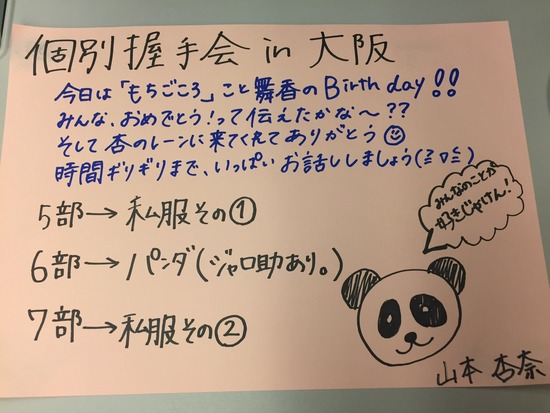 個別握手会 in 大阪
今日は「もちごころ」こと舞香のBirthday!!
みんな、おめでとう!って伝えたかな〜??
そして杏のレーンに来てくれてありがとう☺
時間ギリギリまで、いっぱいお話ししましょう(≧▽≦)
5部→私服その①
6部→パンダ(ジャロ助あり。)
7部→私服その②
みんなのことが
好きじゃけん!
山本 杏奈